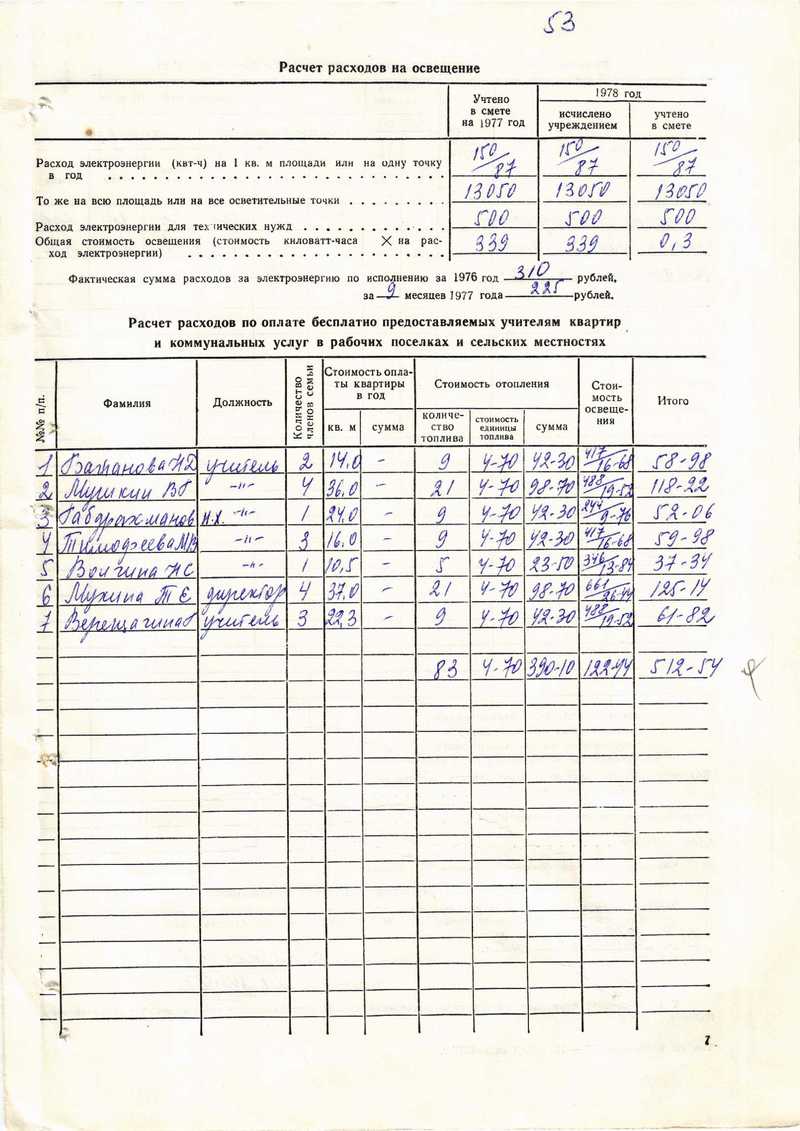 53
Расчет расходов на освещение
Учтено в смете на 1977 год
1978 год
исчислено учреждением
учтено в смете
Расход электроэнергии (квт-ч) на 1 кв. м площади или на одну точку в год 150/87 150/87 150/87
То же на всю площадь или на все осветительные точки 13050 13050 13050
Расход электроэнергии для технических нужд 500 500 500
Общая стоимость освещения (стоимость киловатт-часа X на расход электроэнергии) 339 339 0,3
Фактическая сумма расходов за электроэнергию по исполнению за 1976 год 310 рублей.
за 9 месяцев 1977 года 225 рублей.
Расчет расходов по оплате бесплатно предоставляемых учителям квартир
и коммунальных услуг в рабочих поселках и сельских местностях
№№ п/п. Фамилия Должность Количество членов семьи Стоимость оплаты квартиры в год Стоимость отопления Стоимость освещения Итого
кв. м сумма количество топлива стоимость единицы топлива сумма
1 учитель 2 14,0 – 9 4-70 42-30 417/16-68 58-98
2 –"– 4 36,0 – 21 4-70 98-70 488/19-52 118-22
3 Габдрахманов Н.Х. –"– 1 24,0 – 9 4-70 42-30 244/9-76 52-06
4 Тимофеева –"– 3 16,0 – 9 4-70 42-30 417/16-68 59-98
5 –"– 1 10,5 – 5 4-70 23-50 346/13-84 37-34
6 Мухина Т Е директор 4 37,0 – 21 4-70 98-70 661/26-44 125-14
7 Верещагина Г учитель 3 22,3 – 9 4-70 42-30 488/19-52 61-82
83 4-70 390-10 122-44 512-54
7